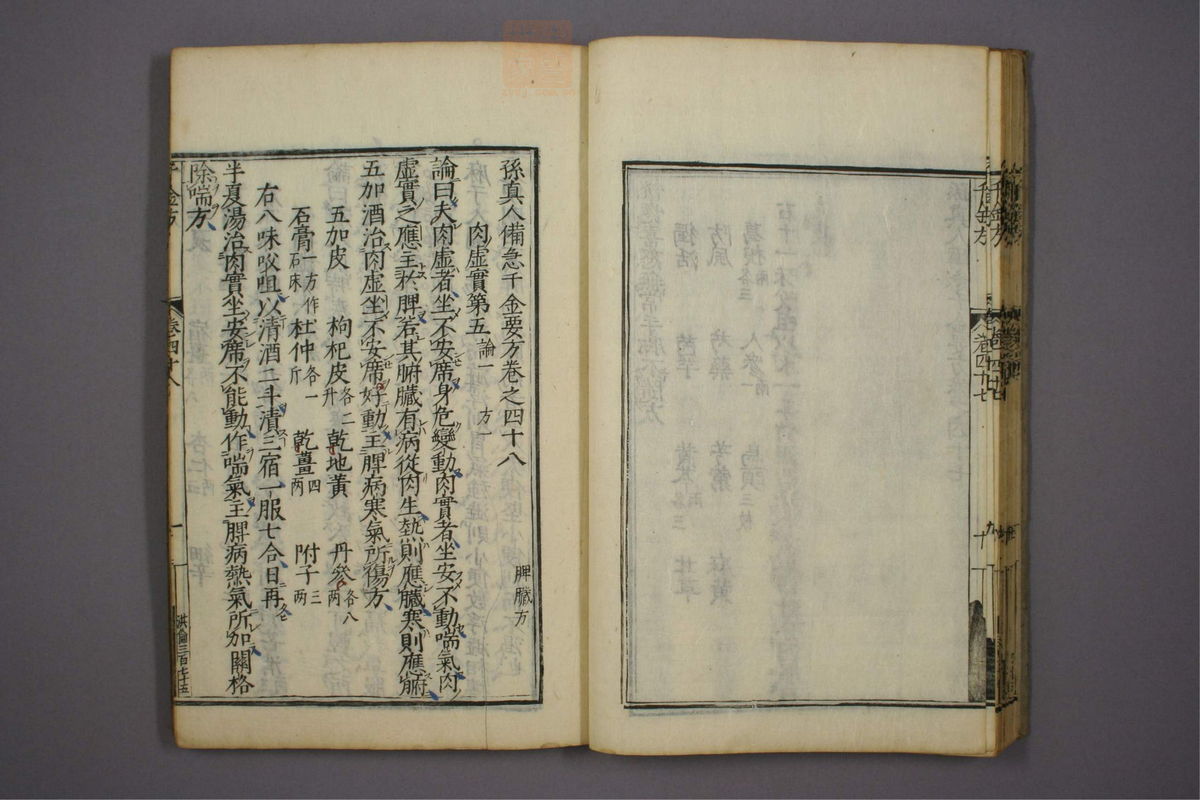 千金方
卷四十七
孫真人備急千金要方卷之四十八
脾臟方
肉虛實第五 論一 方一
論曰夫肉虛者坐不安席身危變動肉實者坐安不動喘氣肉
虛實之應主於脾若其腑臟有病從肉生熱則應臟寒則應腑
五加酒治肉虛坐不安席好動主脾病寒氣所傷方
五加皮 枸杞皮各二升 乾地黃 丹參各八兩
石膏一方作石床 杜仲各一斤 乾薑四兩 附子三兩
右八味㕮咀以清酒二斗漬三宿一服七合日再
半夏湯治肉實坐安席不能動作喘氣主脾病熱氣所加關格
除喘方
千金方
卷四十八
一